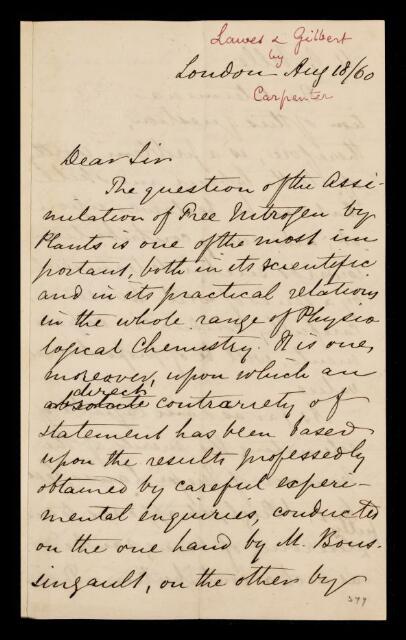 Lawes & Gilbert
by
Carpenter
London Aug 18/60
Dear Sir
The question of the Assi-
milation of Free Nitrogen by
Plants is one of the most im
portant, both in its scientific
and in its practical relations
in the whole range of Physio
logical Chemistry. It is one,
moreover, upon which an
direct
absolute contrariety of
statement has been based
upon the results professedly
obtained by careful experi-
mental enquiries, conducted
on the one hand by M. Bous-
singault, on the other by